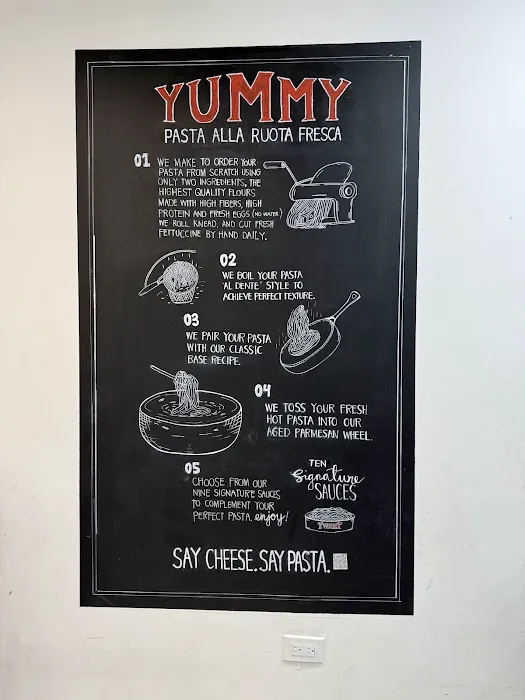 YUMMY
PASTA ALLA RUOTA FRESCA
01
WE MAKE TO ORDER YOUR
PASTA FROM SCRATCH USING
ONLY TWO INGREDIENTS, THE
HIGHEST QUALITY FLOURS
MADE WITH HIGH FIBERS, HIGH
PROTEIN AND FRESH EGGS (NO WATER)
WE ROLL, KNEAD, AND CUT FRESH
FETTUCCINE BY HAND DAILY.
02
WE BOIL YOUR PASTA
'AL DENTE' STYLE TO
ACHIEVE PERFECT TEXTURE.
03
WE PAIR YOUR PASTA
WITH OUR CLASSIC
BASE RECIPE.
04
WE TOSS YOUR FRESH
HOT PASTA INTO OUR
AGED PARMESAN WHEEL.
05
CHOOSE FROM OUR
NINE SIGNATURE SAUCES
TO COMPLEMENT YOUR
PERFECT PASTA. enjoy!
TEN
Signature
SAUCES
YUMMY
SAY CHEESE. SAY PASTA.